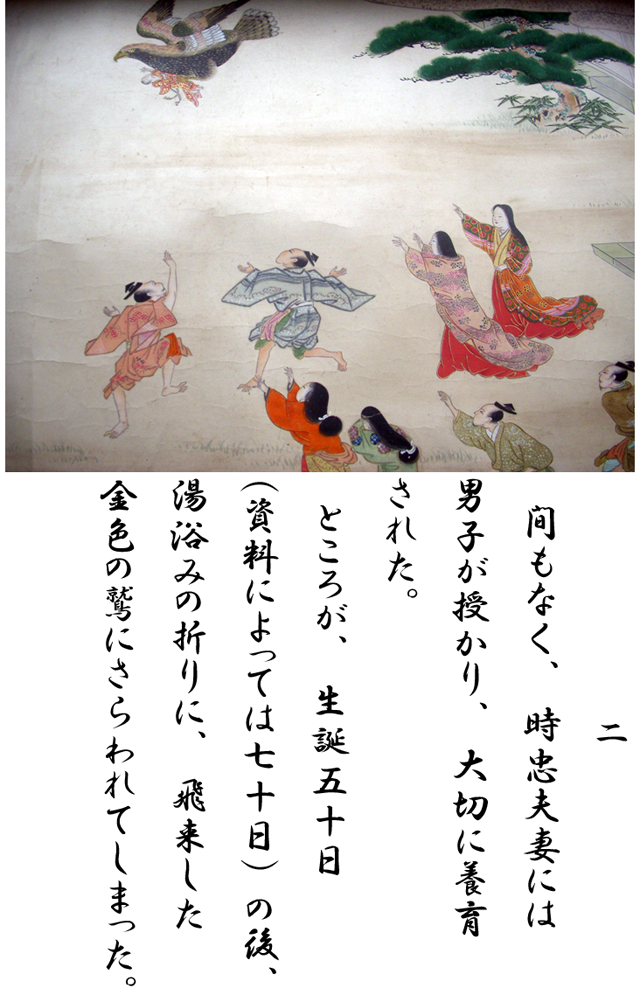 二
間もなく、時忠夫妻には
男子が授かり、大切に養育
された。
ところが、生誕五十日
（資料によっては七十日）の後、
湯浴みの折りに、飛来した
金色の鷲にさらわれてしまった。